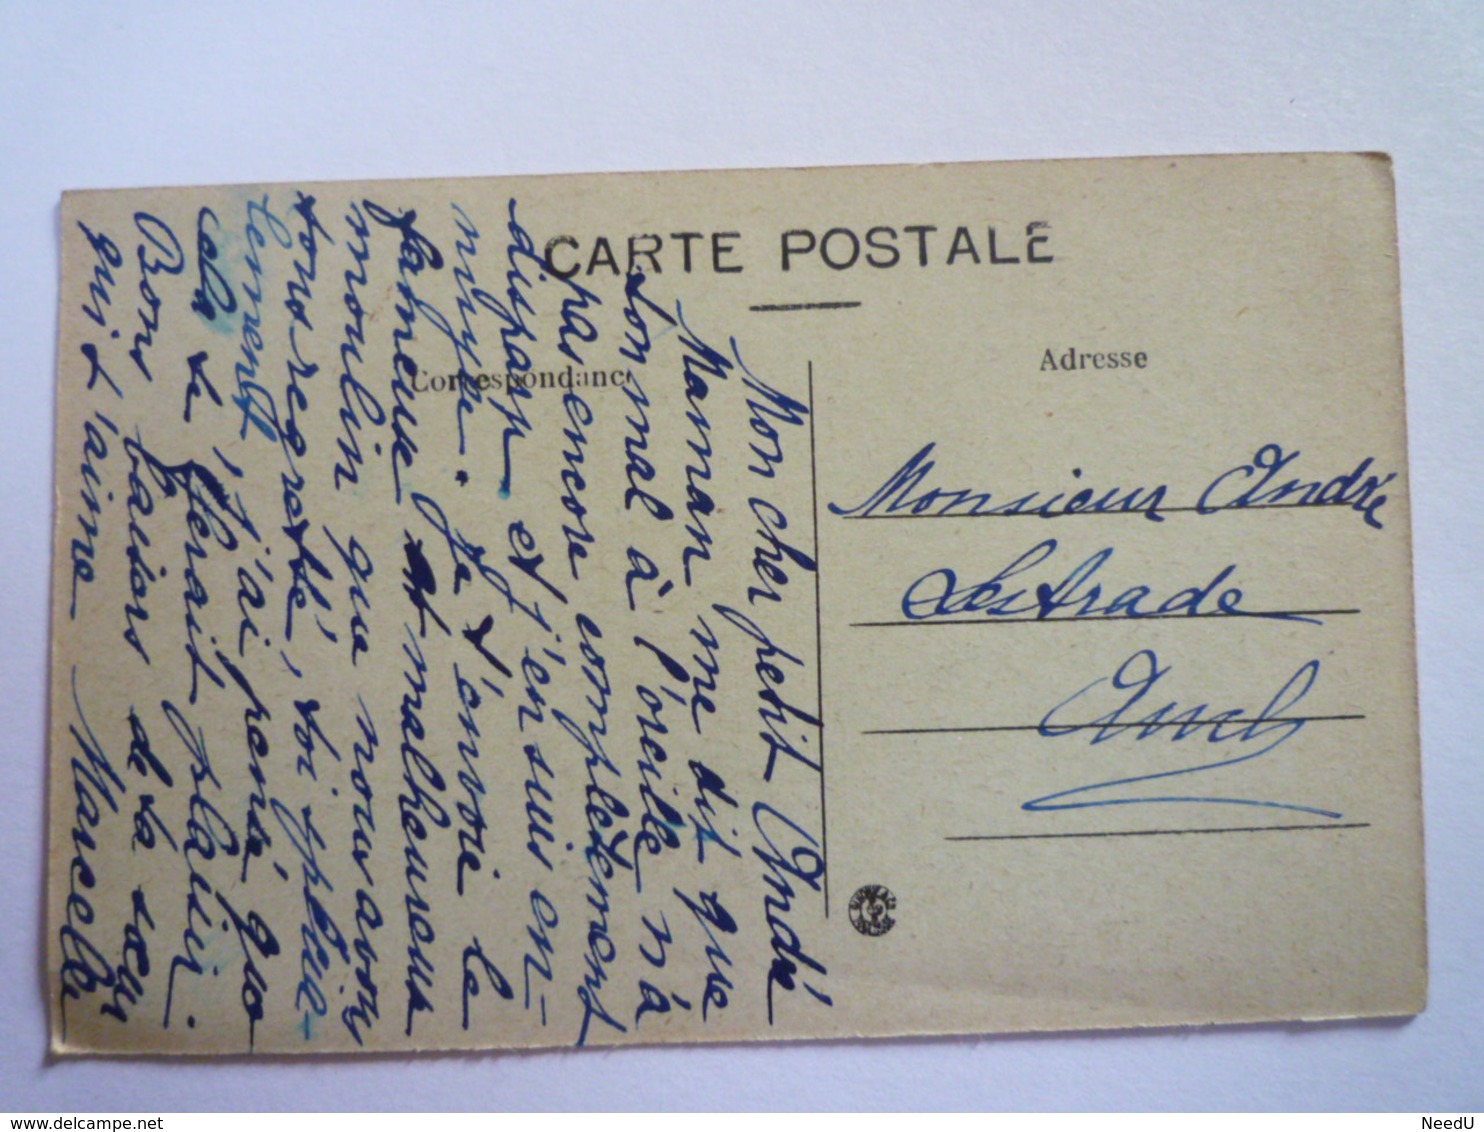 CARTE POSTALE
Correspondance
Adresse
Mon cher petit André
Maman me dit que
ton mal à l'oreille n'a
pas encore complètement
disparu et j'en suis en-
nuyée. Je t'envoie le
fameux et malheureux
moulin que nous avons
tous regretté, toi spécia-
lement, j'ai pensé que
cela te ferait plaisir.
Bons baisers de ta sœur
qui t'aime Marcelle
Monsieur André
Lestrade
Auch
NeedU
delcampe.net